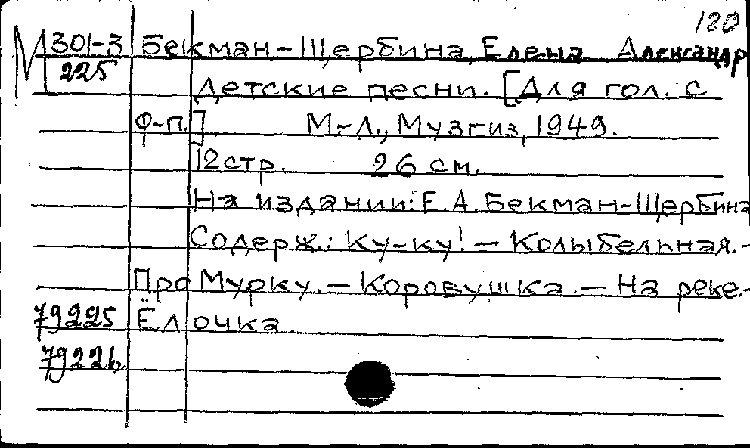 120
М 301-3 Бекман-Щербина, Елена Александр
225 Детские песни. [Для гол. с
ф-п.] М-Л., Музгиз, 1949.
12 стр. 26 см.
На издании: Е.А. Бекман-Щербина
Содерж.: Ку-ку! — Колыбельная. -
Про Мурку. — Коровушка. — На реке. -
79225 Ёлочка.
79226